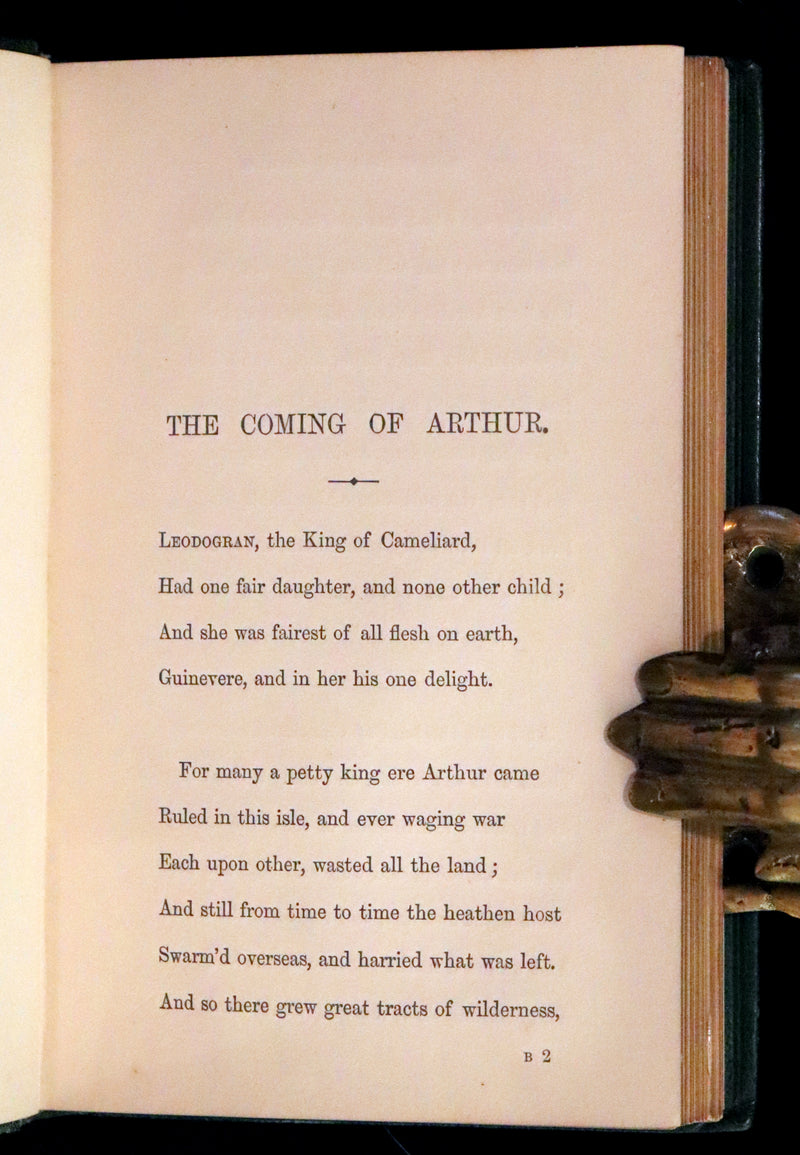 THE COMING OF ARTHUR.
LEODOGRAN, the King of Cameliard,
Had one fair daughter, and none other child ;
And she was fairest of all flesh on earth,
Guinevere, and in her his one delight.
For many a petty king ere Arthur came
Ruled in this isle, and ever waging war
Each upon other, wasted all the land ;
And still from time to time the heathen host
Swarm'd overseas, and harried what was left.
And so there grew great tracts of wilderness,
B 2